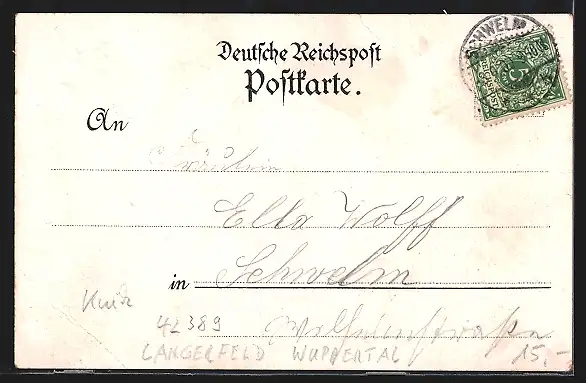 Deutsche Reichspost
Postkarte.
SCHWELM
An
Fräulein
Ella Wolff
in Schwelm
Wilhelmstrasse
42389
LANGERFELD WUPPERTAL
15.-